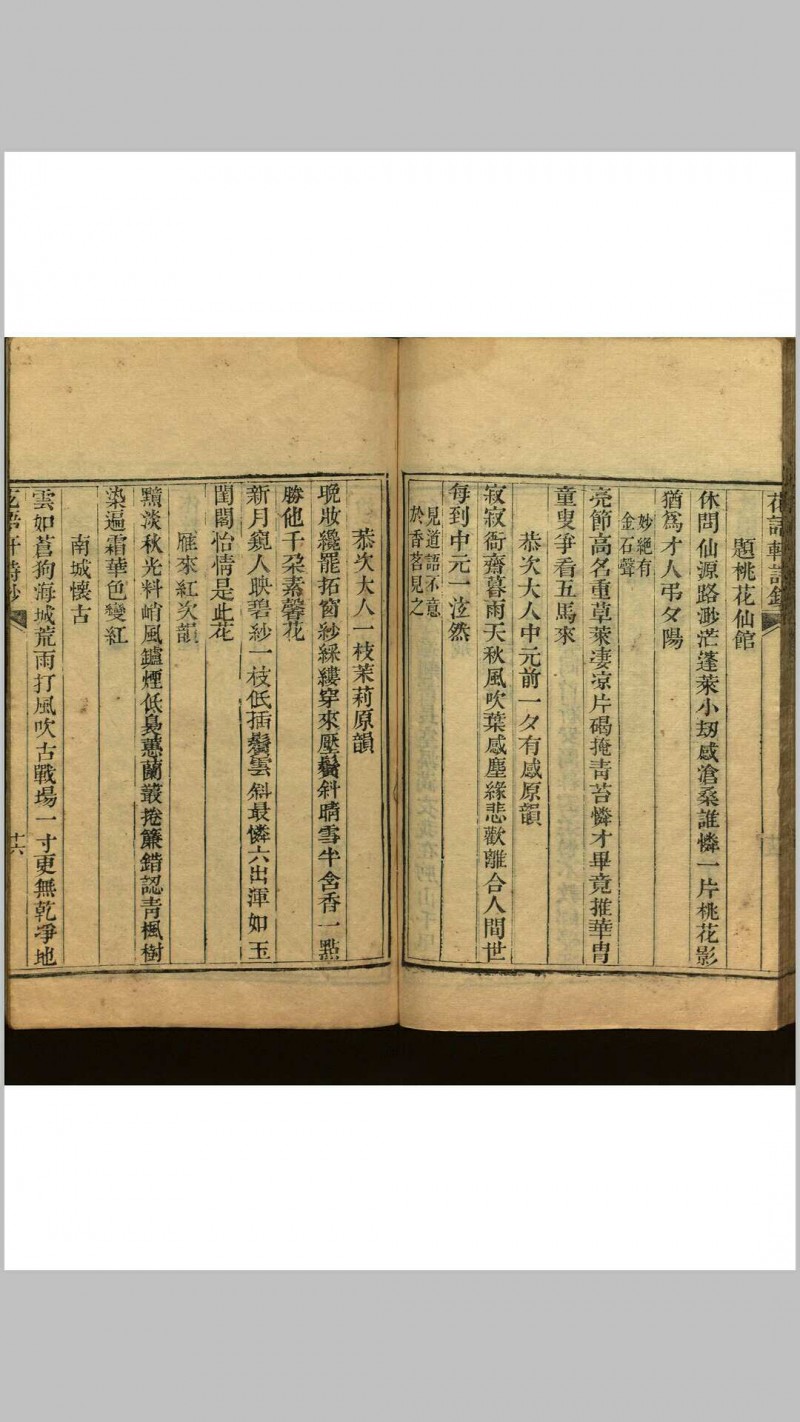 花語軒詩鈔
題桃花仙館
休問仙源路渺茫蓬萊小刼感滄桑誰憐一片桃花影
猶爲才人弔夕陽
妙絕有
金石聲
亮節高名重草萊淒凉片碣掩靑苔憐才畢竟推華胄
童叟爭看五馬來
恭次大人中元前一夕有感原韻
寂寂衙齋暮雨天秋風吹葉感塵緣悲歡離合人間世
每到中元一泫然
見道語不意
於香茗見之
恭次大人一枝茉莉原韻
晚妝纔罷拓窗紗綵縷穿來壓鬢斜晴雪半含香一點
勝他千朶素馨花
新月窺人映碧紗一枝低插鬢雲斜最憐六出渾如玉
閨閣怡情是此花
雁來紅次韻
黯淡秋光料峭風鑪煙低裊蕙蘭叢捲簾錯認靑楓樹
染遍霜華色變紅
南城懷古
雲如蒼狗海城荒雨打風吹古戰場一寸更無乾凈地
花語軒詩鈔
十六